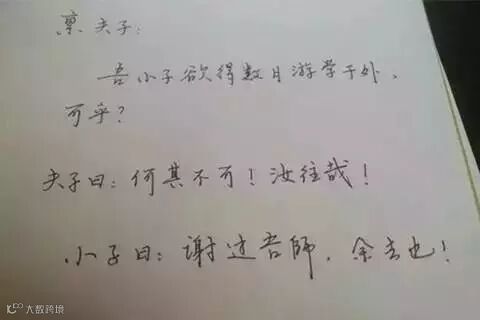 禀夫子：
吾小子欲得数日游学于外，
可乎？
夫子曰：何其不可！汝往哉！
小子曰：谢过吾師，余去也！
大数跨境